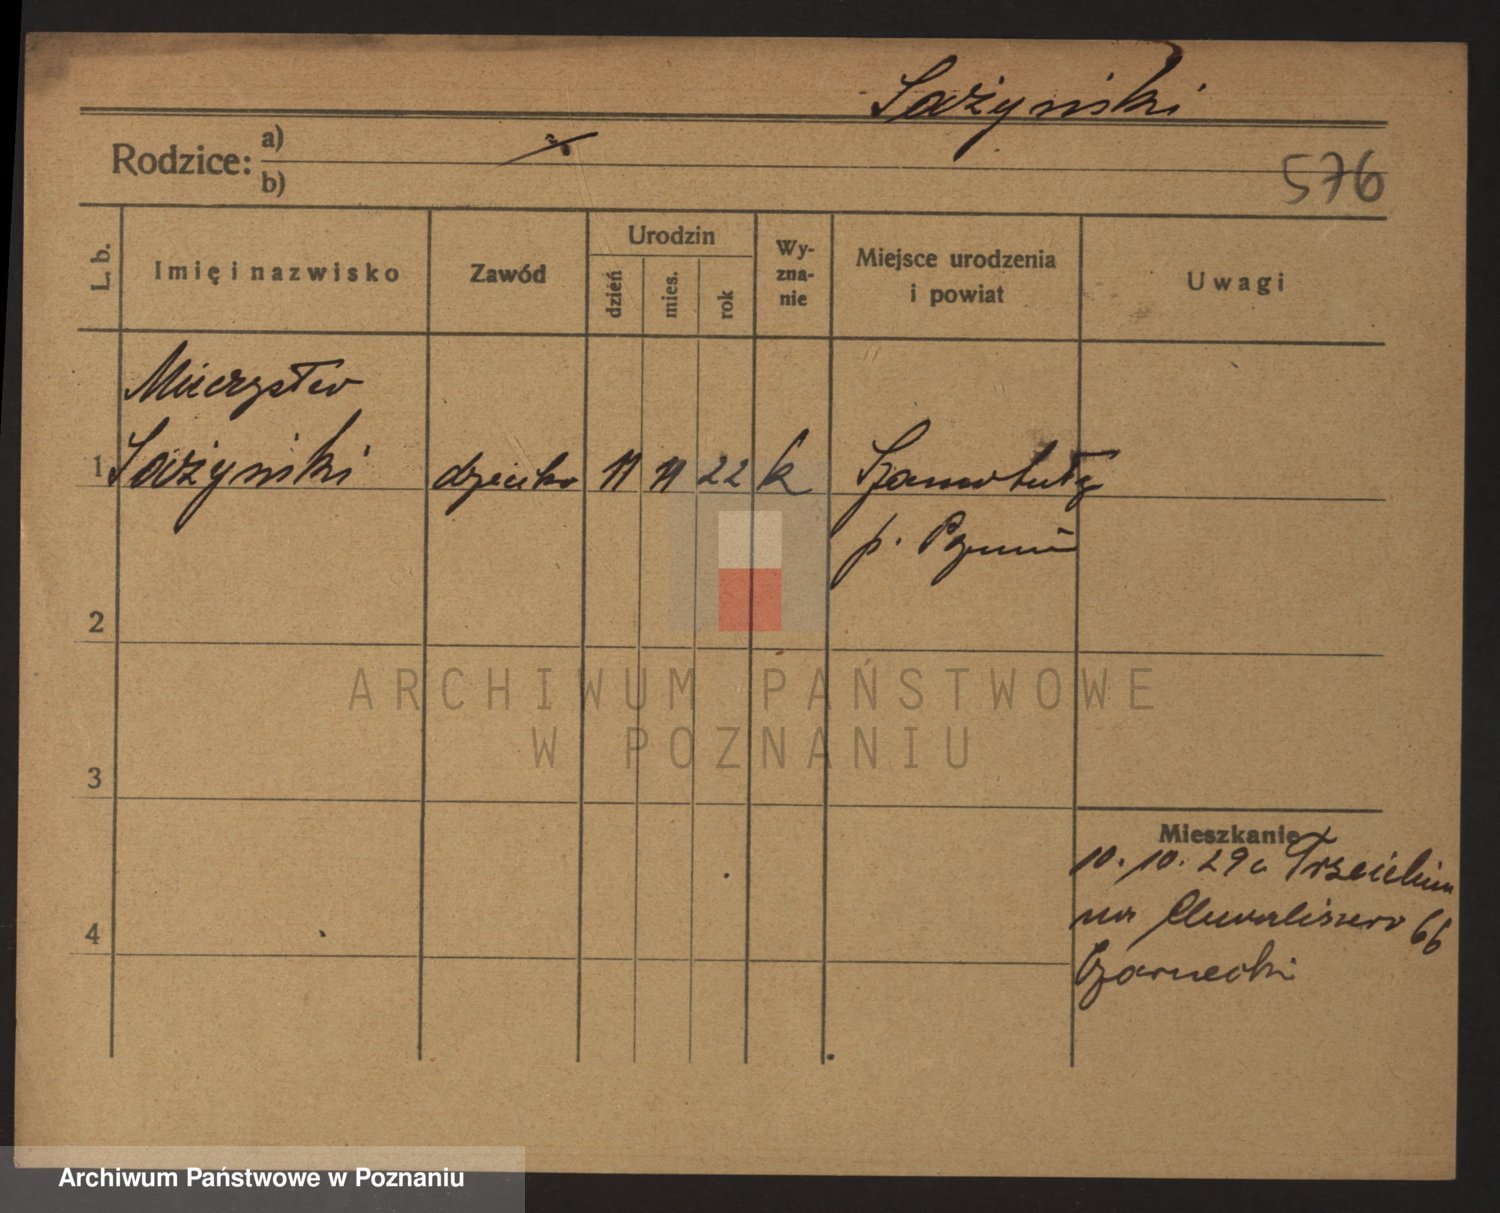 Sażyński
Rodzice: a)
b)
576
L. b.
Imię i nazwisko
Zawód
Urodzin
dzień
mies.
rok
Wy-
zna-
nie
Miejsce urodzenia
i powiat
Uwagi
Mieczysław
1 Sażyński dziecko 11 11 22 k Szamotuły
p.
2
3
4
Mieszkanie
10. 10. 29 z
na Chwaliszewo 66
Czarnecki
ARCHIWUM PAŃSTWOWE
W POZNANIU
Archiwum Państwowe w Poznaniu